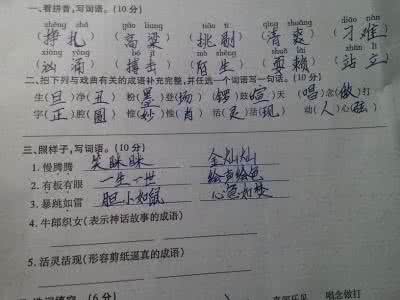 一、看拼音,写词语。(10 分)
zhēng zhá gāo liang tiāo tī qīng shuǎng diāo nàn
(挣扎) (高粱) (挑剔) (清爽) (刁难)
xiōng yǒng bó jī mò shēng shuǎ lài zhàn lì
(汹涌) (搏击) (陌生) (耍赖) (站立)
二、把下列与戏曲有关的成语补充完整,并任选一个词语写一句话。(10 分)
生(旦)净(丑) 粉(墨)登(场) (锣)鼓(喧)天 (唱)念(做)打
字(正)腔(圆) 惟(妙)惟(肖) 活(灵)活(现) 动(人)心(弦)
三、照样子,写词语。(10 分)
1. 慢腾腾 笑眯眯 金灿灿
2. 有板有眼 一生一世 绘声绘色
3. 暴跳如雷 胆小如鼠 心急如焚
4. 牛郎织女(表示神话故事的成语)
5. 活灵活现(形容剪纸逼真的成语)
(6 分) 唱念做打